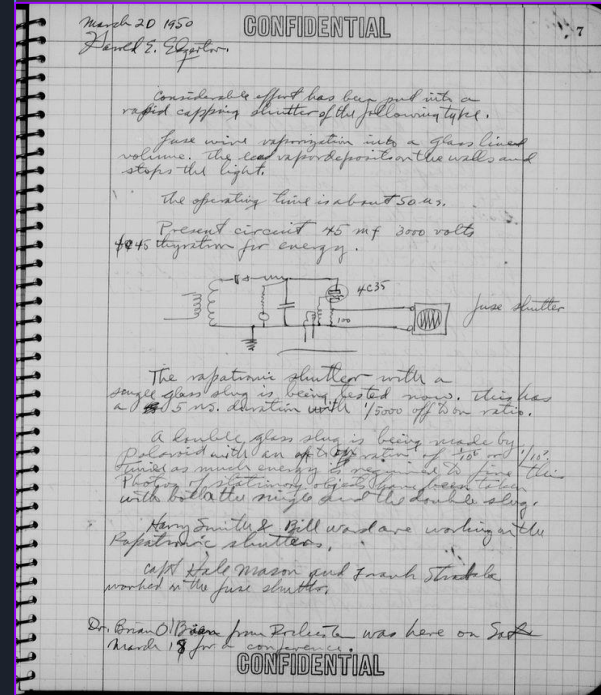 CONFIDENTIAL
7
March 20 1950
Harold E. Edgerton.
Considerable effort has been put into a
rapid capping shutter of the following type.
Fuse wire vaporization into a glass lined
volume. The vapor deposits on the walls and
stops the light.
The operating time is about 50 us.
Present circuit 45 mf 3000 volts
thyratron for energy.
4C35
100
fuse shutter
The rapatronic shutter with a
single glass slug is being tested now. This has
a 5 us. duration with 1/5000 off to on ratio.
A double glass slug is being made by
Polaroid with an ratio of
times as much energy is required to fire this
Photos of stationary objects have been taken
with both the single and the double slug.
Harry Smith & Bill Ward are working on the
Rapatronic shutters.
Capt Hale Mason and Frank
worked on the fuse shutter.
Dr. Brian O'Brien from Rochester was here on Sat
March 18 for a conference.
CONFIDENTIAL